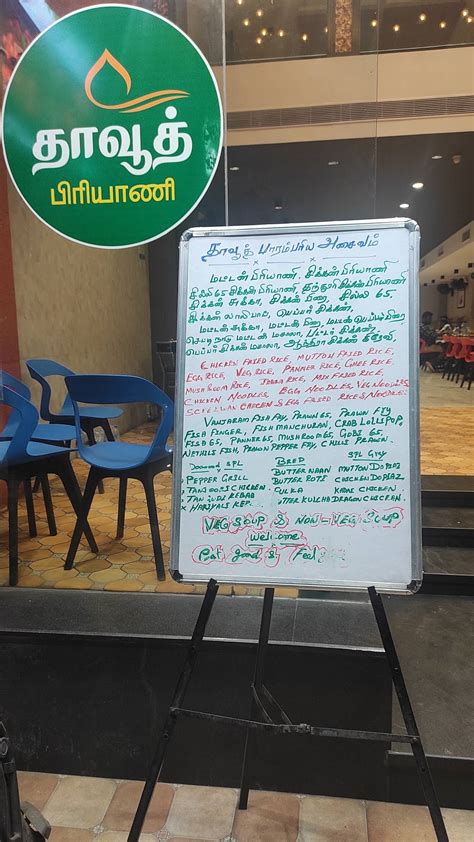 தாவூத்
பிரியாணி
தாவூத் பாரம்பரிய அசைவம்
மட்டன் பிரியாணி, சிக்கன் பிரியாணி
சில்லி 65 சிக்கன் பிரியாணி, தந்தூரி சிக்கன் பிரியாணி
சிக்கன் சுக்கா, சிக்கன் சில்லி 65,
சிக்கன் லாலிபாப், பெப்பர் சிக்கன்,
மட்டன் சுக்கா, மட்டன்
மட்டன் மசாலா, பட்டர் சிக்கன்,
பெப்பர் சிக்கன் மசாலா, ஆந்திரா சிக்கன்
CHICKEN FRIED RICE, MUTTON FRIED RICE,
EGG RICE, VEG RICE, PANNER RICE, GHEE RICE,
MUSHROOM RICE, JEERA RICE, MIX FRIED RICE,
CHICKEN NOODLES, EGG NOODLES, VEG NOODLES
CHICKEN & EGG FRIED RICE & NOODLES
VANJARAM FISH FRY, PRAWN 65, PRAWN FRY
FISH FINGER, FISH MANCHURAN, CRAB LOLLIPOP,
FISH 65, PANNER 65, MUSHROOM 65, GOBI 65
NETHILI FISH, PRAWN PEPPER FRY, CHILLI PRAWN.
SPL BREED SPL GRY
PEPPER GRILL BUTTER NAAN MUTTON DOPIAZ
TANDOORI CHICKEN BUTTER ROTI CHICKEN DOPIAZ
KEBAB FULKA CHICKEN
HARIYALI KEP. KULCHA DRAGON CHICKEN.
VEG SOUP & NON-VEG SOUP
Welcome
Eat good & Feel